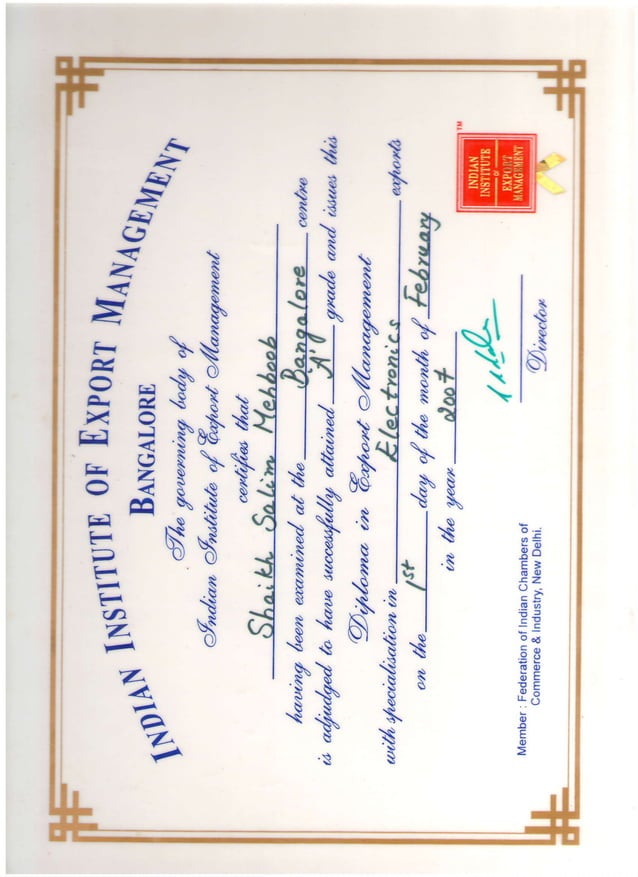 INDIAN INSTITUTE OF EXPORT MANAGEMENT
BANGALORE
The governing body of
Indian Institute of Export Management
certifies that
Shaikh Salim Mehboob
having been examined at the Bangalore centre
is adjudged to have successfully attained 'A' grade and issues this
Diploma in Export Management
with specialisation in Electronics exports
on the 1st day of the month of February
in the year 2007
Member : Federation of Indian Chambers of
Commerce & Industry, New Delhi.
Director
INDIAN
INSTITUTE
OF
EXPORT
MANAGEMENT
TM